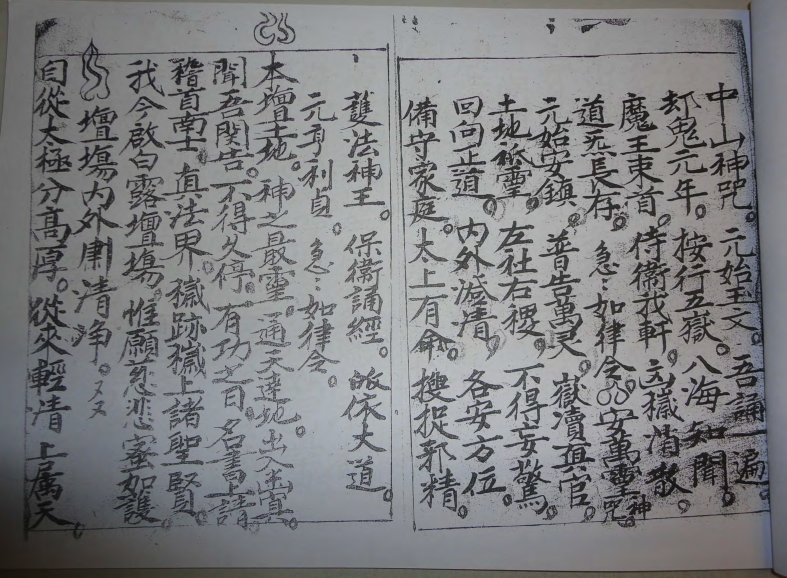 中山神咒。元始玉文。吾誦一遍。
却鬼元年。按行五嶽。八海知聞。
魔王束首。侍衛我軒。凶穢消散
道炁長存。急〻如律令 安萬靈神咒
元始安鎮。普告萬灵。嶽瀆真官。
土地祇靈。左社右稷。不得妄驚。
回向正道。内外澄清。各安方位。
備守家庭。太上有命。搜捉邪精。
護法神王。保衛誦經。皈依大道。
元亨利貞。急〻如律令。
本壇土地。神之最靈。通天達地。出入幽冥。
聞吾関告。不得久停。有功之日。名書上請。
稽首南士。真法界。穢跡穢上諸聖賢。
我今啟白露壇場。惟願慈悲密加護。
壇場内外肅清净。又又
自從太極分高厚。從來輕清上属天。